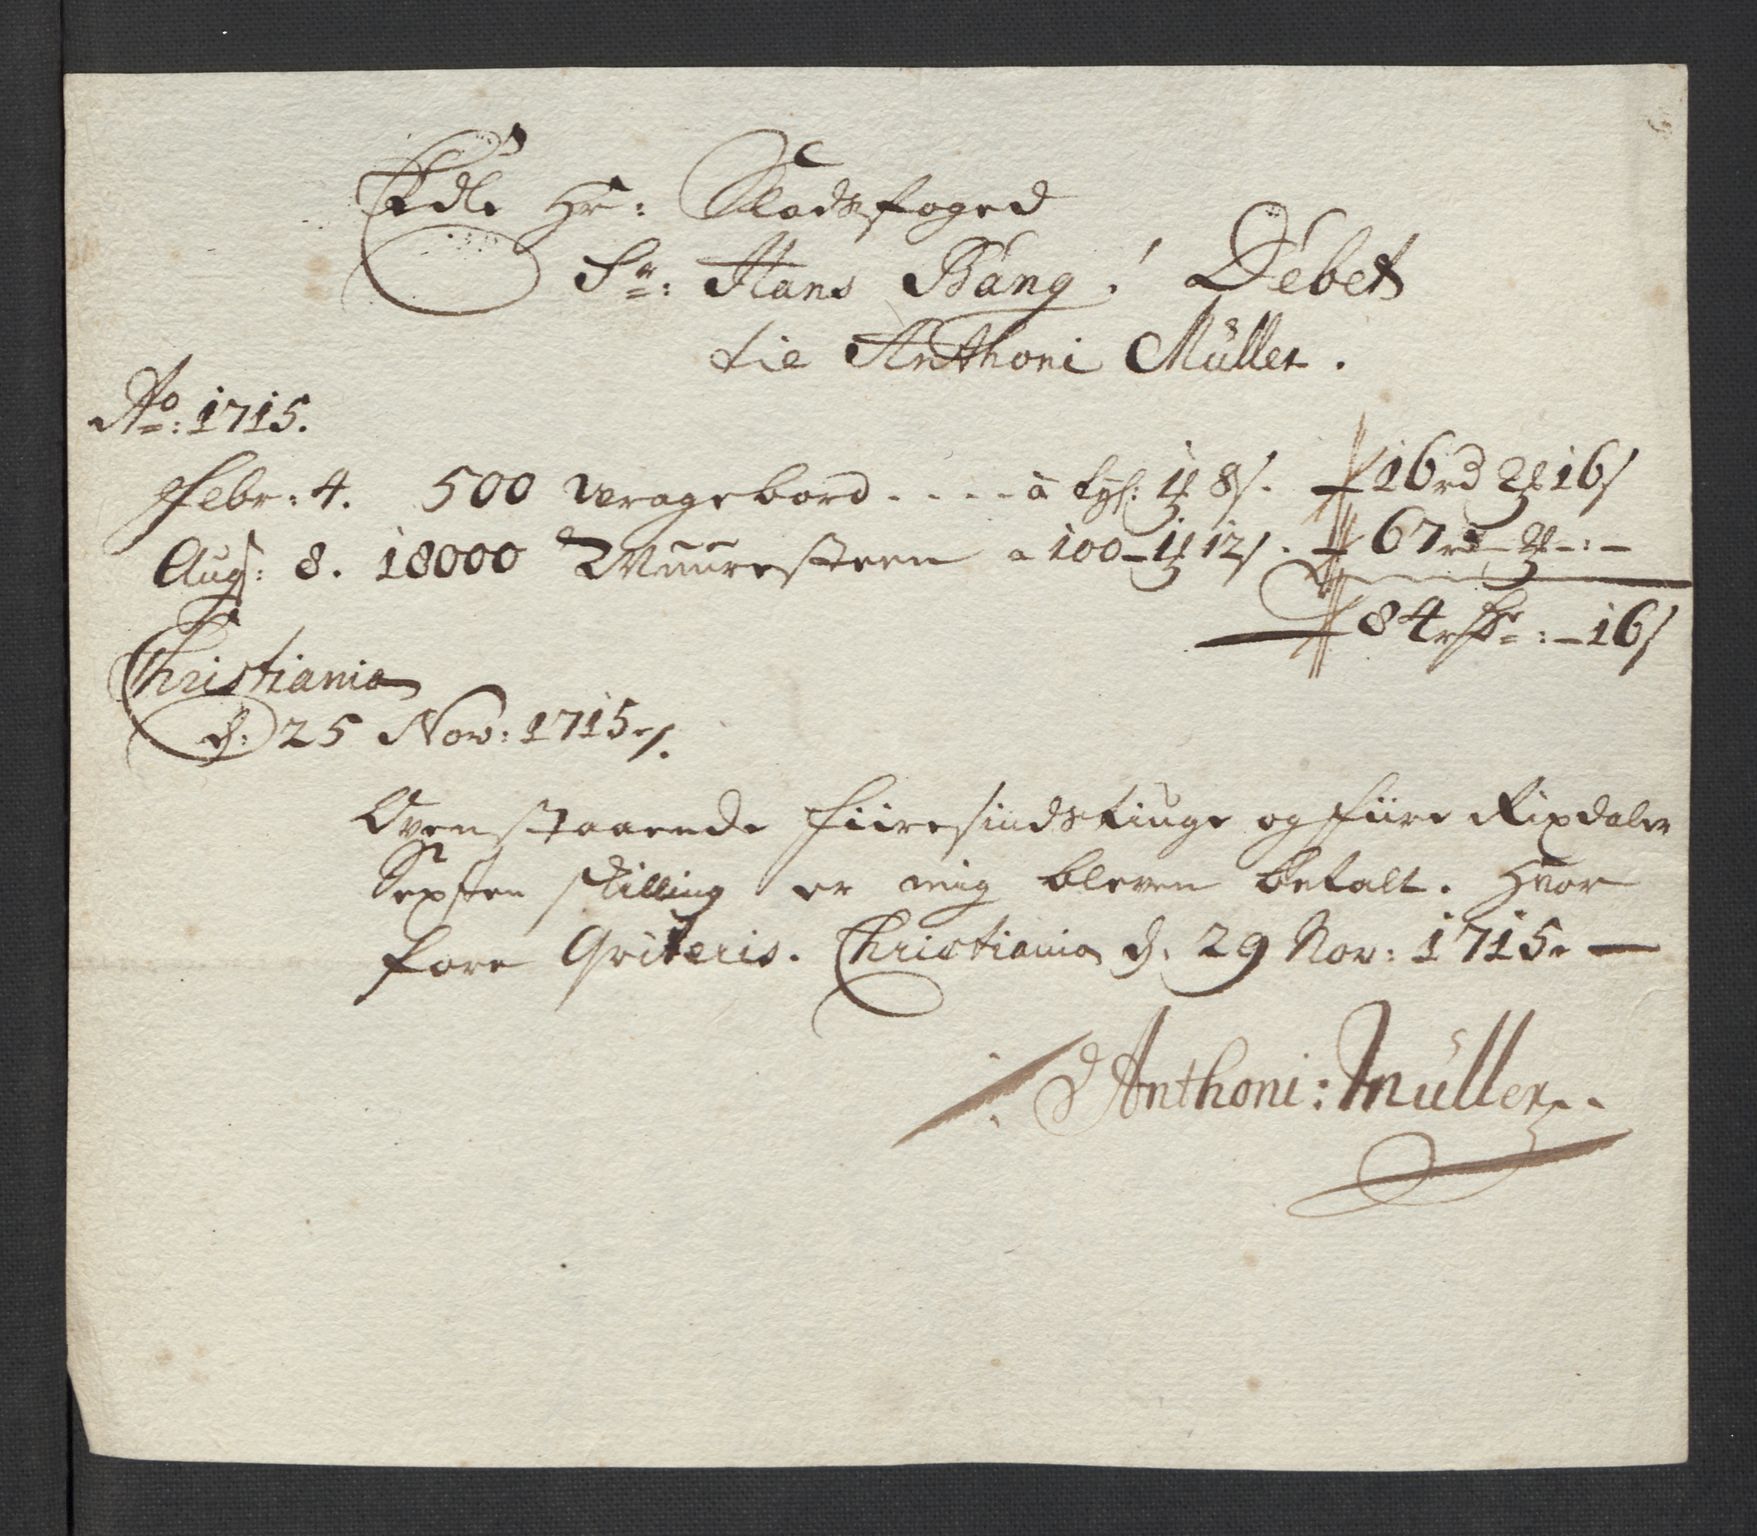 Edle Hr: Slodsfoged
Sr: Hans Bang! Debet
til Anthoni Müller.
Ao: 1715.
Febr: 4. 500 Vragebord - - - - à tylf: 1 8s. 16 rd 2 16s
Aug: 8. 18000 Muuresteen a 100 - 1 12s. 67 rd - - : -
84 r - : - 16s
Christiania
d: 25 Nov: 1715.
Ovenstaaende fiiresindstiuge og fiire Rixdaler
Sexsten skilling er mig bleven betalt. Hvor
fore Qviteris. Christiania d. 29 Nov: 1715. -
Anthoni: Müller.